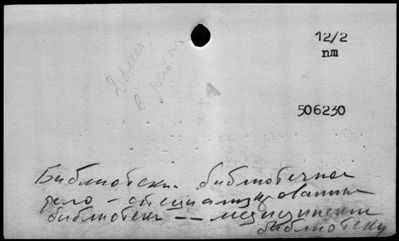 12/2
nm
506230
Библиотеки. библиотечное
дело – специализированные
библиотеки – медицинские
библиотеки